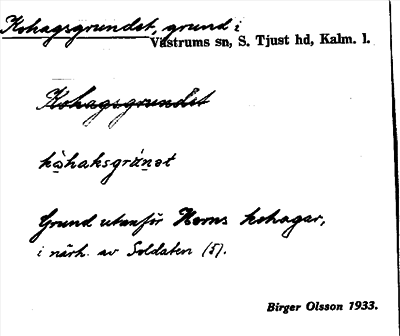 Kohagsgrundet, grund i
Västrums sn, S. Tjust hd, Kalm. l.
Kohagsgrundet
kòhaksgránət
Grund utanför Horns kohagar,
i närh. av Soldaten (5).
Birger Olsson 1933.